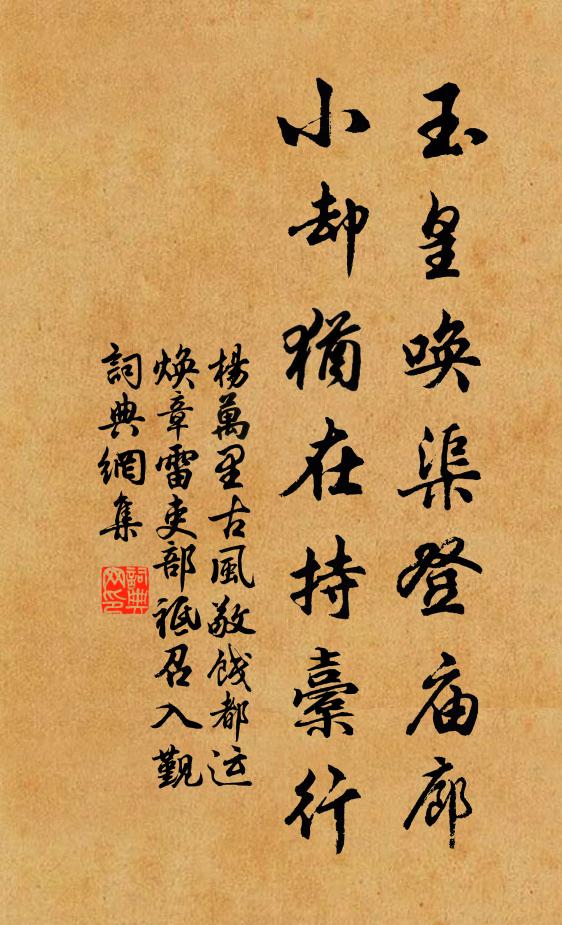 玉皇唤渠登庙廊
小却犹在持橐行
楊萬里古風敬餞都运
焕章雷吏部祗召入觐
詞典網集
詞典网印